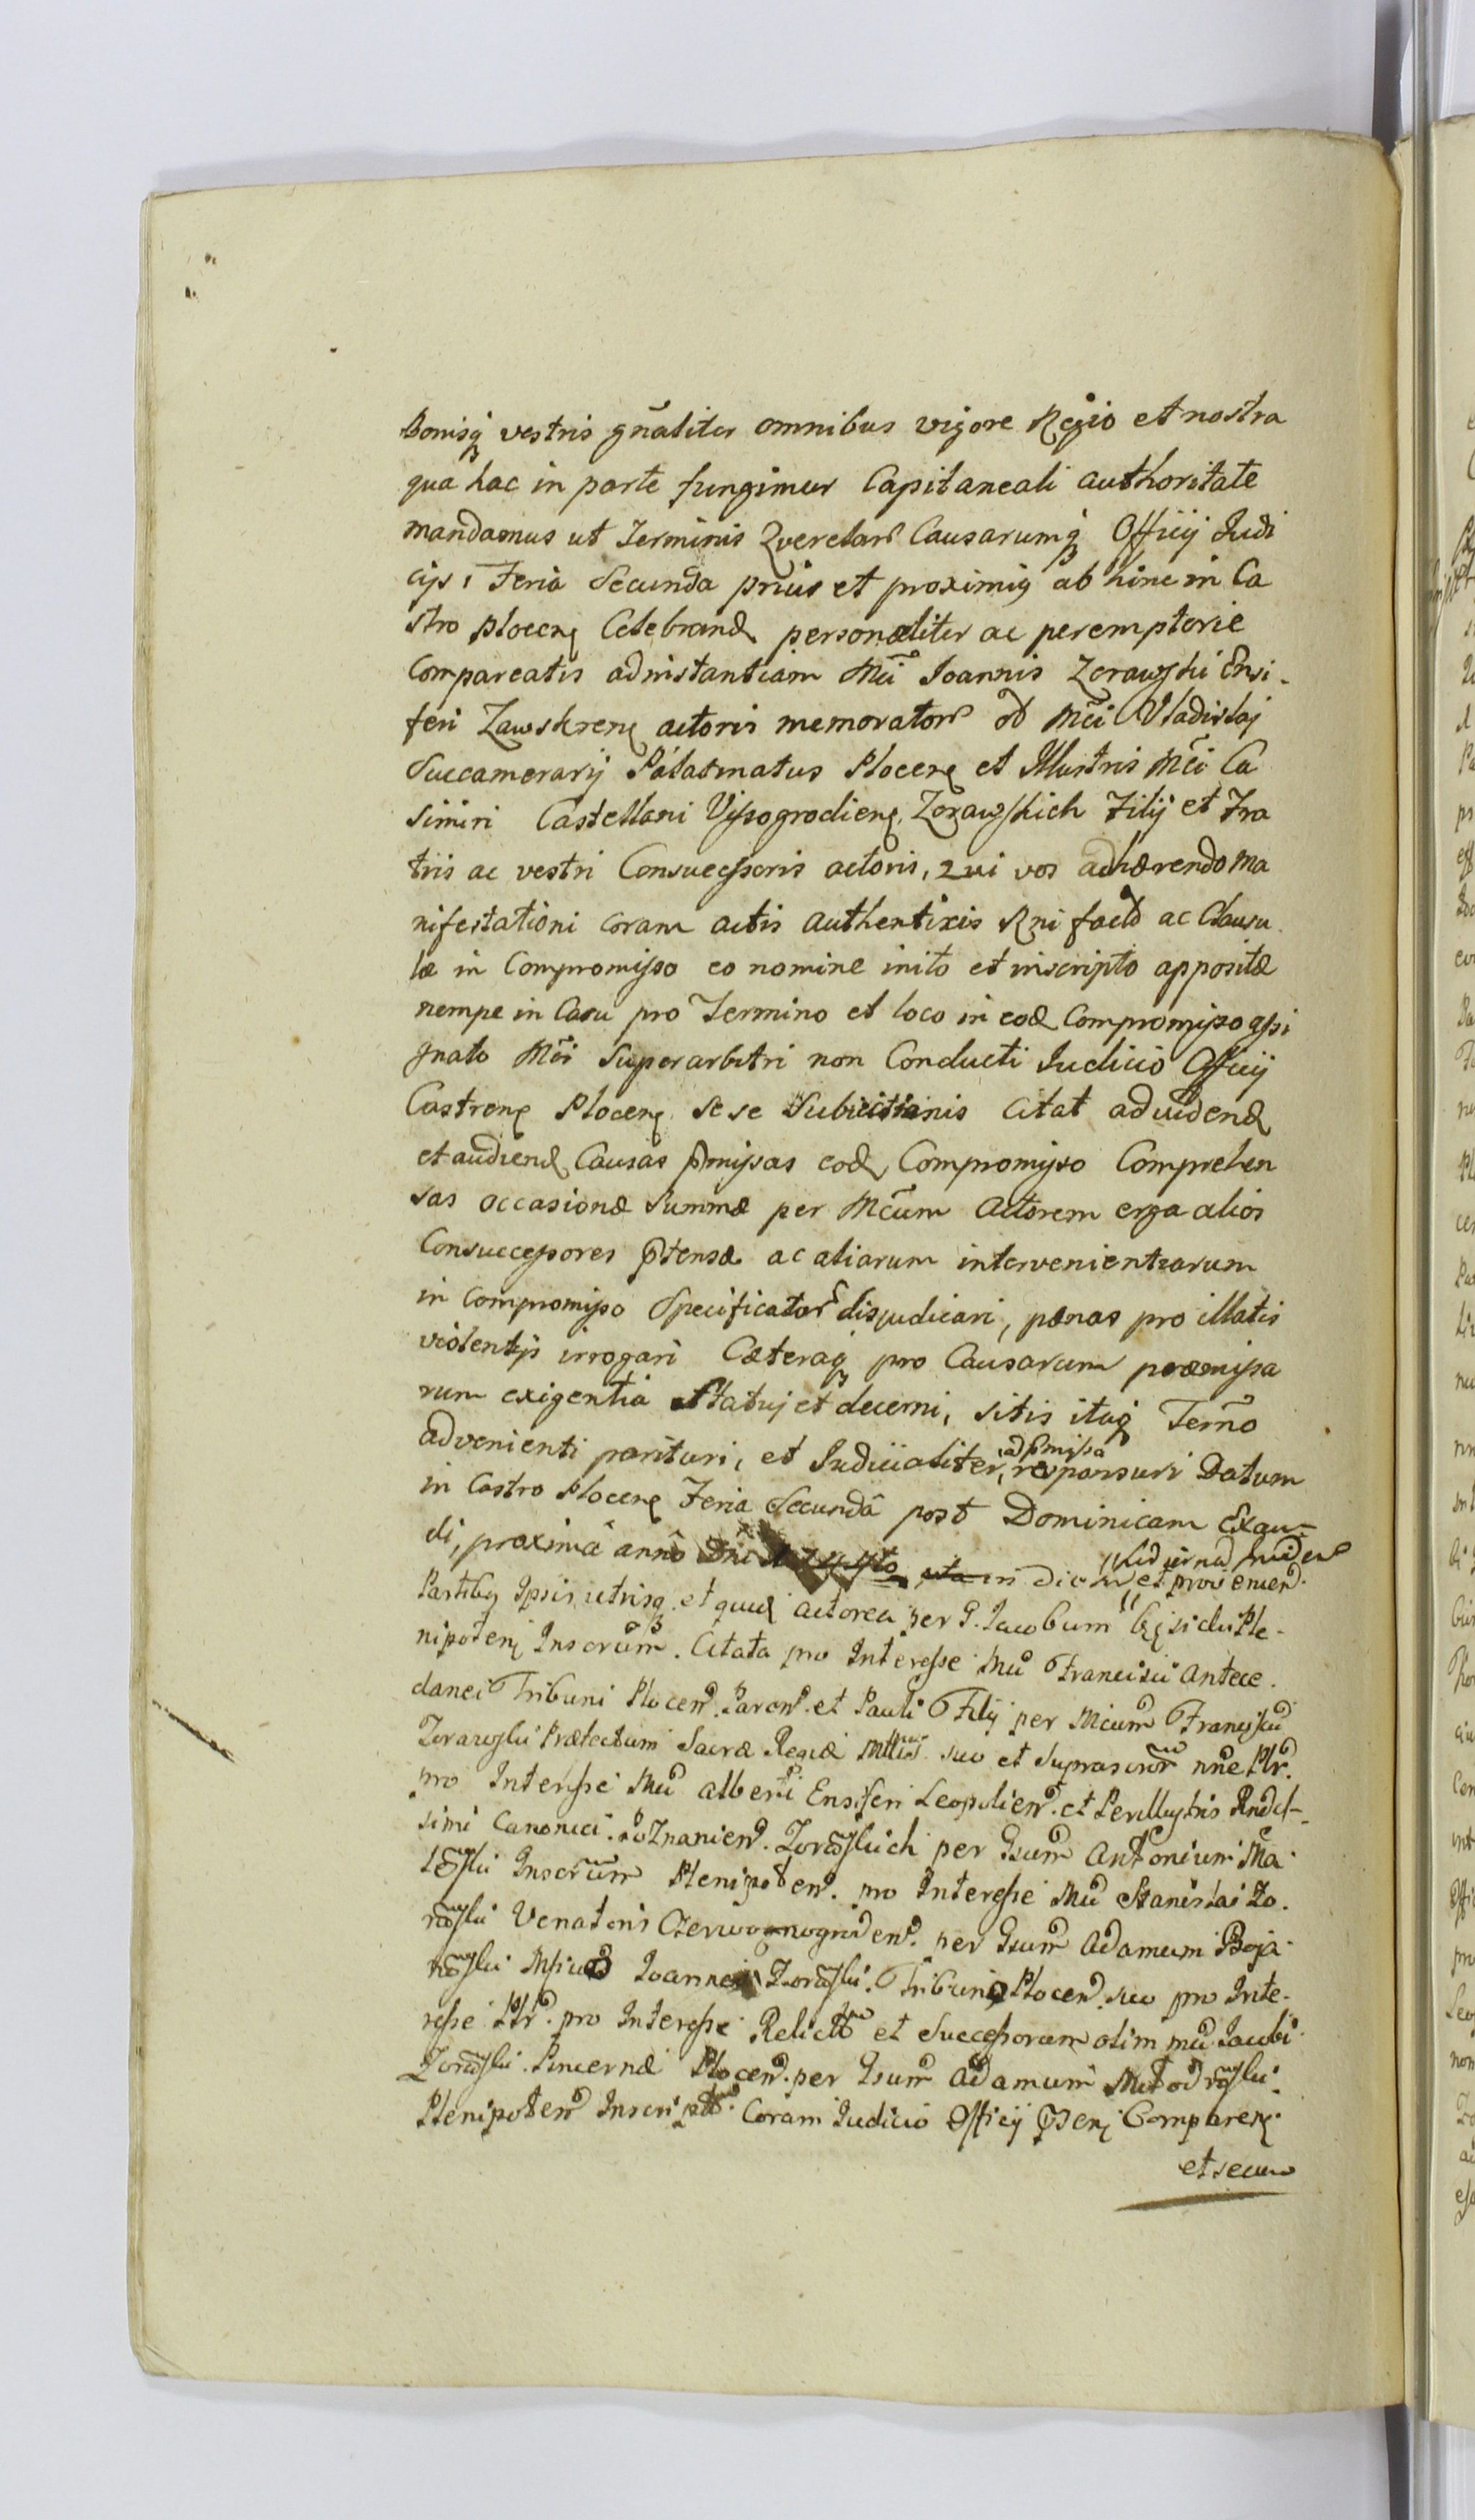 Bonisq vestris gn̄aliter omnibus vigore Regio et nostra
qua hac in parte fungimur Capitaneali authoritate
mandamus ut Terminis Querelar Causarumq Officij Judi
cijs, Feria Secunda prius et proximis ab hinc in Ca
stro plocen Celebrand personaliter ac peremptorie
Compareatis ad instantiam Mci Joannis Zorawski Ensi-
feri Zawskren actoris memorator Mci Vladislaj
Succamerarij Palatinatus Plocen et Illustris Mci Ca
simiri Castellani Vissogrodien, Zorawskich Filij et Fra
tris ac vestri Consuccessoris actoris, qui vos adhærendo ma
nifestationi coram actis authenticis Rni ac Clausu
læ in Compromisso eo nomine inito et inscripto appositæ
nempe in Casu pro Termino et loco in eod Compromisso assi
gnato Mci Superarbitri non Conducti Judicio Officij
Castren Plocen sese Subiectionis Citat ad vidend
et audiend Causas pmissas eod Compromisso Comprehen
sas occasione Summæ per Mcum Actorem erga alios
Consuccessores ptensæ ac aliarum intervenientiarum
in Compromisso Specificator disjudicari, pænas pro illatis
violentijs irrogari Cæteraq pro Causarum præmissa
rum exigentia Statuj et decerni, sitis itaq Terno
advenienti parituri, et Judicialiter, ad pmissa responsuri Datum
in Castro Plocen Feria Secundâ post Dominicam Exau-
di, proximâ annô Dni et provenien.
Partibq Ipsis utrisq et quid actorea per G. Jacobum Ple-
nipoten Inscrum. Citata pro Interesse Mci Francisci Antece.
danei Tribuni Plocen. Paren. et Pauli Filij per Mcum Franciscu
Zorawski Præfectum Sacræ Regiæ suo et Suprascr nne Plr.
pro Interesse Mci alberti Ensiferi Leopolien. et Perillustris Rndis-
simi Canonici Poznanien. Zorawskich per Gsum Antonium Ma
Inscrum Plenipoten. pro Interesse Mci Stanislai Zo.
rawski Venatoris per Gsum Adamum Boja
rawski Joannes Zorawski Tribung Plocen suo pro Inte-
resse Plr. pro Interesse Relictæ et Successorum olim Mci Jacobi
Zorawski Pincernæ Plocen. per Gsum Adamum
Plenipoten Inscript. Coram Judicio Officij psen Comparen
et secu